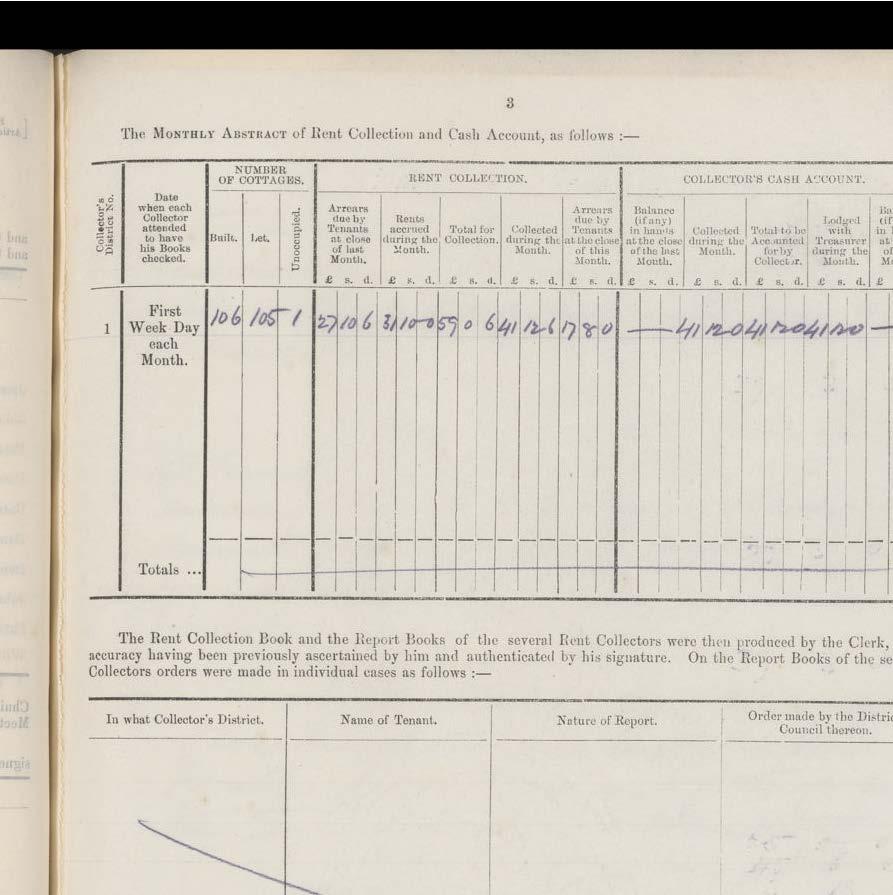 3
The MONTHLY ABSTRACT of Rent Collection and Cash Account, as follows :—
Collector's
District No.
Date
when each
Collector
attended
to have
his Books
checked.
NUMBER
OF COTTAGES.
Built.
Let.
Unoccupied.
RENT COLLECTION.
Arrears
due by
Tenants
at close
of last
Month.
£ s. d.
Rents
accrued
during the
Month.
£ s. d.
Total for
Collection.
£ s. d.
Collected
during the
Month.
£ s. d.
Arrears
due by
Tenants
at the close
of this
Month.
£ s. d.
COLLECTOR'S CASH ACCOUNT.
Balance
(if any)
in hands
at the close
of the last
Month.
£ s. d.
Collected
during the
Month.
£ s. d.
Total to be
Accounted
for by
Collector.
£ s. d.
Lodged
with
Treasurer
during the
Month.
£ s. d.
Ba
(if
in
at
of
M
£
1
First
Week Day
each
Month.
106 105 1 27 10 6 31 10 0 59 0 6 41 12 6 17 8 0 — 41 12 0 41 12 0 41 12 0 —
Totals ...
The Rent Collection Book and the Report Books of the several Rent Collectors were then produced by the Clerk,
accuracy having been previously ascertained by him and authenticated by his signature. On the Report Books of the se
Collectors orders were made in individual cases as follows :—
In what Collector's District.
Name of Tenant.
Nature of Report.
Order made by the Distric
Council thereon.